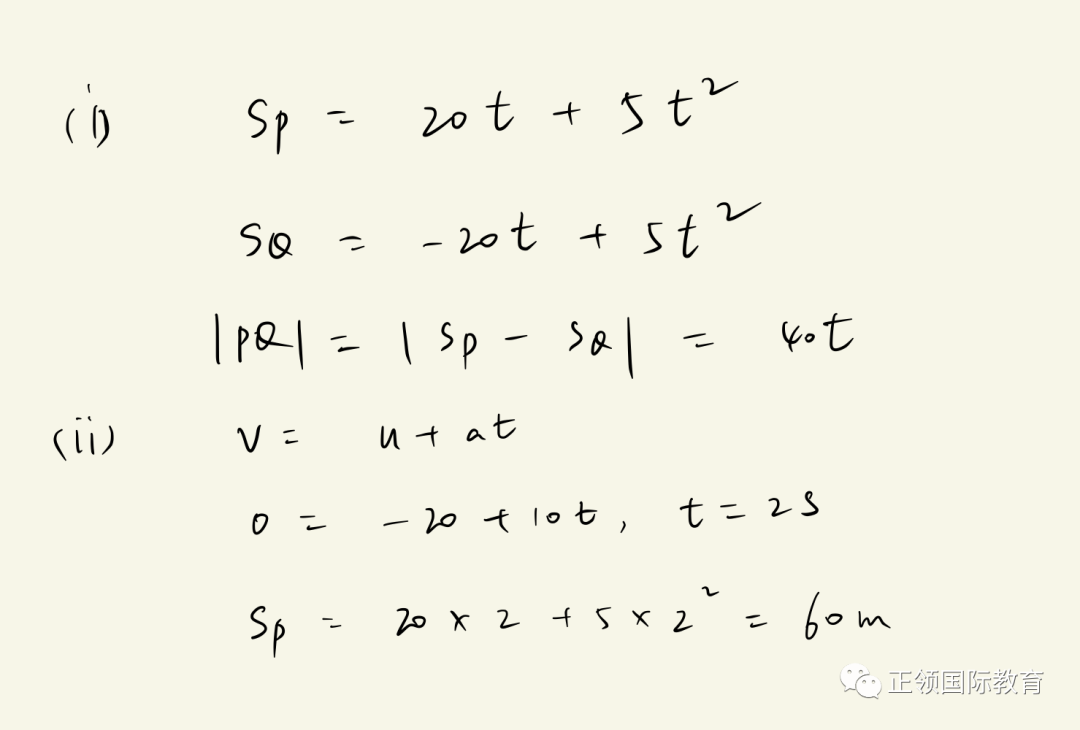 (i) Sp = 20t + 5t²
SQ = -20t + 5t²
|PQ| = |Sp - SQ| = 40t
(ii) v = u + at
0 = -20 + 10t, t = 2s
Sp = 20 × 2 + 5 × 2² = 60m
正领国际教育